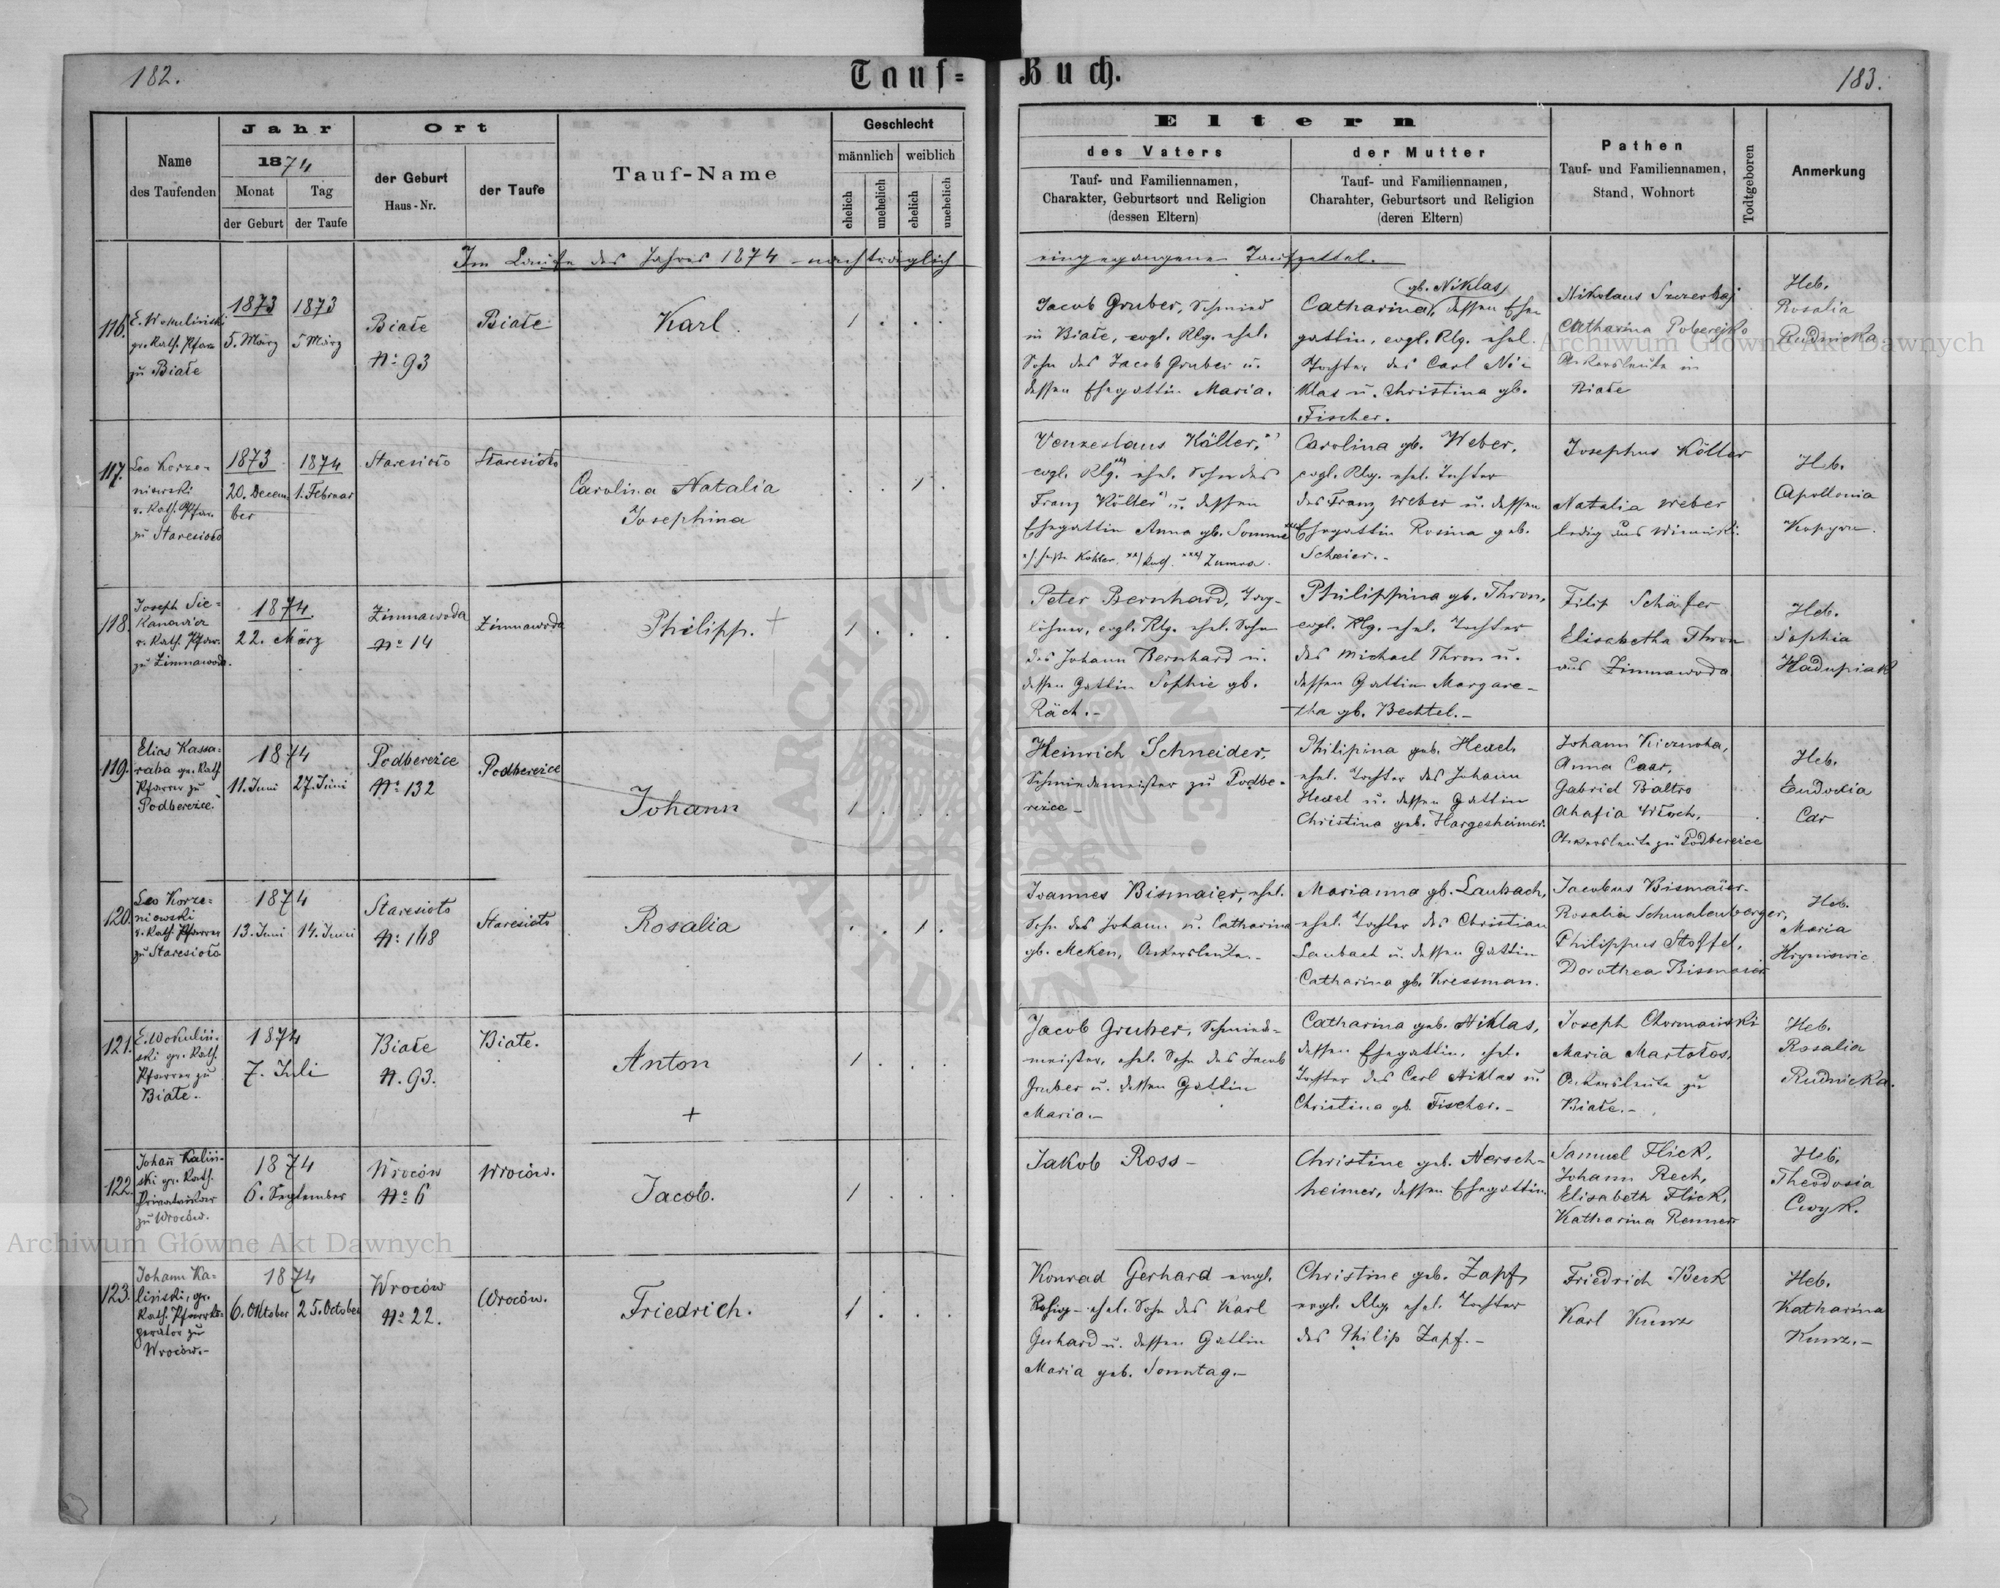 182.
Tauf=
Buch.
183.
Name
des Taufenden
Jahr
1874
Monat
der Geburt
Tag
der Taufe
Ort
der Geburt
Haus-Nr.
der Taufe
Tauf-Name
Geschlecht
männlich
weiblich
ehelich
unehelich
ehelich
unehelich
Eltern
des Vaters
Tauf- und Familiennamen,
Charakter, Geburtsort und Religion
(dessen Eltern)
der Mutter
Tauf- und Familiennamen,
Charahter, Geburtsort und Religion
(deren Eltern)
Pathen
Tauf- und Familiennamen,
Stand, Wohnort
Todtgeboren
Anmerkung
Im Laufe des Jahres 1874 nachträglich
eingegangene Taufzettel.
116.
gr. Kath. Pfar.
zu Białe
1873
5. März
1873
5 März
Białe
No 93
Białe
Karl.
1
Jacob Gruber, Schmied
in Białe, evgl. Rlg. ehel.
Sohn des Jacob Gruber u.
dessen Ehegattin Maria.
gb. Niklas
Catharina, dessen Ehe
gattin, evgl. Rlg. ehel.
Tochter des Carl Ni-
klas u. Christina gb.
Fischer.
Nikolaus
Catharina
Ackersleute in
Białe
Heb.
Rosalia
Rudnicka
117.
Leo Korze-
niowski
r. Kath. Pfar.
zu Staresioło
1873
20. Decem
ber
1874
1. Februar
Staresioło
Staresioło
Carolina Natalia
Josephina
1
Venzeslaus Kälter,
evgl. Rlg. ehel. Sohn des
Franz Költer u. dessen
Ehegattin Anna gb. Somma
Carolina gb. Weber,
evgl. Rlg. ehel. Tochter
des Franz Weber u. dessen
Ehegattin Rosina geb.
Scheier.-
Josephus Költer
Natalia Weber
ledig aus
Heb.
Apollonia
118.
Joseph Sie-
kanowicz
r. Kath. Pfarr.
zu Zimnawoda.
1874
22. März
Zimnawoda
No 14
Zimnawoda
Philipp. +
1
Peter Bernhard, Tag-
löhner, evgl. Rlg. ehel. Sohn
des Johann Bernhard u.
dessen Gattin Sophie gb.
Räch.-
Philippina gb. Thron,
evgl. Rlg. ehel. Tochter
des Michael Thron u.
dessen Gattin Margare-
tha gb. Bechtel.-
Filip Schäfer
Elisabetha Thron
aus Zimnawoda
Heb.
Sophia
Hadupiak
119.
Elias Kassa-
raba gr. Kath.
Pfarrer zu
Podbereżce.
1874
11. Juni
27. Juni
Podbereżce
No 132
Podbereżce
Johann
1
Heinrich Schneider,
Schmiedemeister zu Podbe-
reżce-
Philipina geb. Hexel
ehel. Tochter des Johann
Hexel u. dessen Gattin
Christina geb. Hargesheimer.
Johann
Anna Caar,
Gabriel Baltro
Ahafia
Ackersleute zu Podbereżce
Heb.
Eudoxia
Car
120.
Leo Korze-
niowski
r. Kath. Pfarrer
zu Staresioło
1874
13. Juni
14. Juni
Staresioło
No 148
Staresioło
Rosalia
1
Ioannes Bismaier, ehel.
Sohn des Johann u. Catharina
gb. Meken, Ackersleute.-
Marianna gb. Laubach,
ehel. Tochter des Christian
Laubach u. dessen Gattin
Catharina gb. Kressman.
Jacobus Bismaier.
Rosalia Schmalenberger,
Philippus Stoffel,
Dorothea Bismaier
Heb.
Maria
121.
E. Wokuliń-
ski gr. Kath.
Pfarrer zu
Białe.
1874
7. Juli
Białe
N. 93.
Białe.
Anton
+
1
Jacob Gruber, Schmied-
meister, ehel. Sohn des Jacob
Gruber u. dessen Gattin
Maria.-
Catharina geb. Niklas,
dessen Ehegattin, ehel.
Tochter des Carl Niklas u
Christina gb. Fischer.-
Joseph Chomański
Maria Martołos.
Ackersleute zu
Białe.-
Heb.
Rosalia
Rudnicka.
122.
Johañ Kaliń-
ski gr. Kath.
zu Wroców.
1874
6. September
Wroców
No 6
Wroców.
Jacob.
1
Jakob Ross-
Christine geb. Hersch-
heimer, dessen Ehegattin
Samuel Flick,
Johann Rech,
Elisabeth Flick,
Katharina Renner
Heb.
Theodosia
Cwyk.
123.
Johann Ka-
liński, gr.
zu
Wroców.-
1874
6. Oktober
25. October
Wroców
No 22.
Wroców.
Friedrich.
1
Konrad Gerhard evgl.
ehel. Sohn des Karl
Gerhard u. dessen Gattin
Maria geb. Sonntag.-
Christine geb. Zapf,
evgl. Rlg. ehel. Tochter
des Philip Zapf.-
Friedrich Beck
Karl Kunz
Heb.
Katharina
Kunz.-
Archiwum Główne Akt Dawnych
Archiwum Główne Akt Dawnych